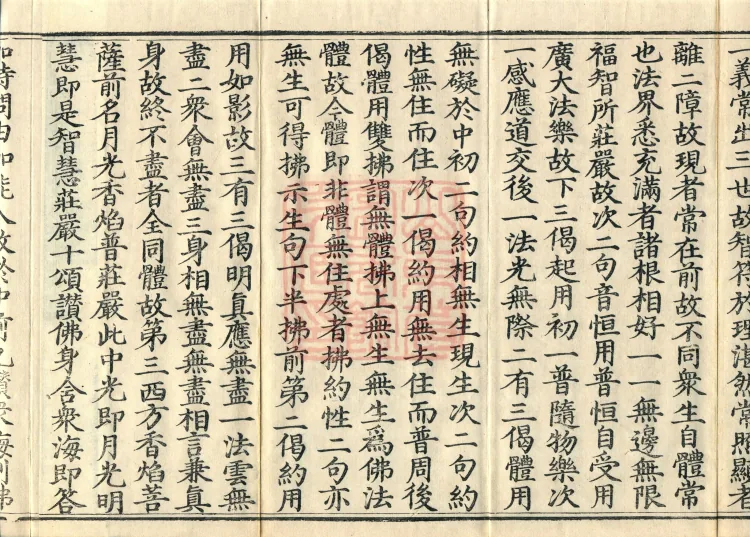 一義常出三世故智符於理湛然常照顯者
離二障故現者常在前故不同衆生自體常
也法界悉充滿者諸根相好一一無邊無限
福智所莊嚴故次二句音恒用普恒自受用
廣大法樂故下三偈起用初一普隨物樂次
一感應道交後一法光無際二有三偈體用
無礙於中初二句約相無生現生次二句約
性無住而住次一偈約用無去住而普周後
偈體用雙拂謂無體拂上無生無生爲佛法
體故今體即非體無住處者拂約性二句亦
無生可得拂示生句下半拂前第二偈約用
用如影故三有三偈明真應無盡一法雲無
盡二衆會無盡三身相無盡無盡相言兼真
身故終不盡者全同體故第三西方香焰菩
薩前名月光香焰普莊嚴此中光即月光明
慧即是智慧莊嚴十頌讃佛身含衆海即答
如時問由如能入故於中前